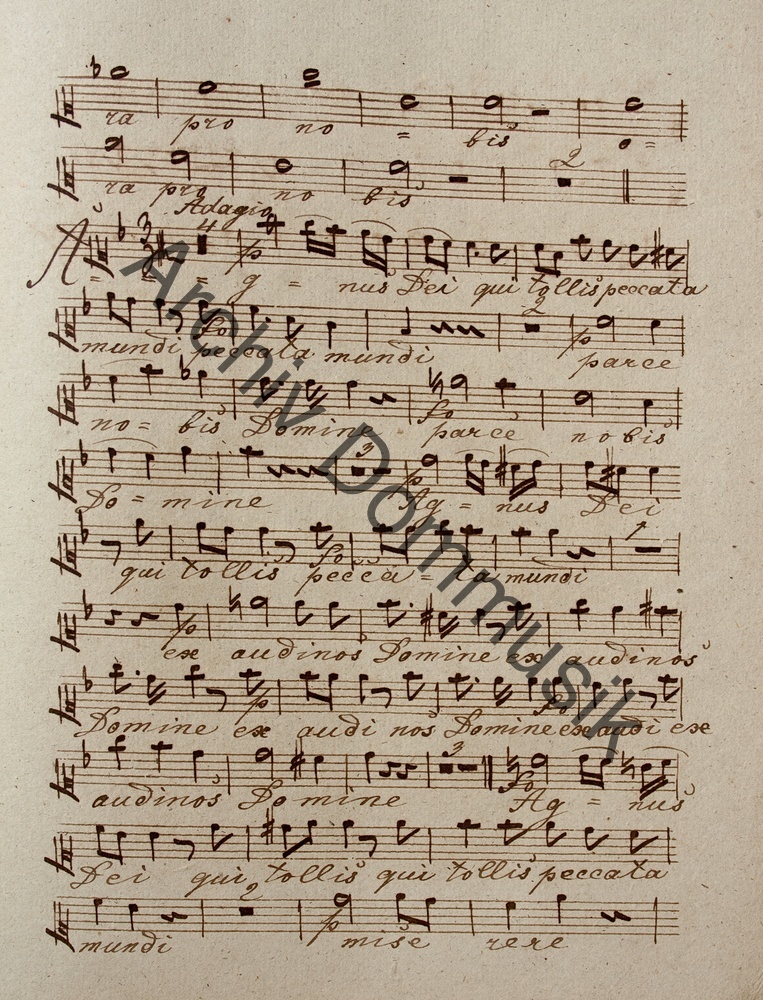 ra pro no = bis o=
2
ra pro no bis
Adagio
A = = g = nus Dei qui tollis peccata
2
mundi peccata mundi parce
no = bis Domine parce nobis
3
Do = mine Ag = nus Dei
qui tollis pecca = ta mundi
ex audinos Domine ex audinos
Domine ex audi nos Domine ex audi ex
3
audinos Domine Ag = nus
Dei qui tollis qui tollis peccata
2
mundi mise rere
Archiv Dommusik